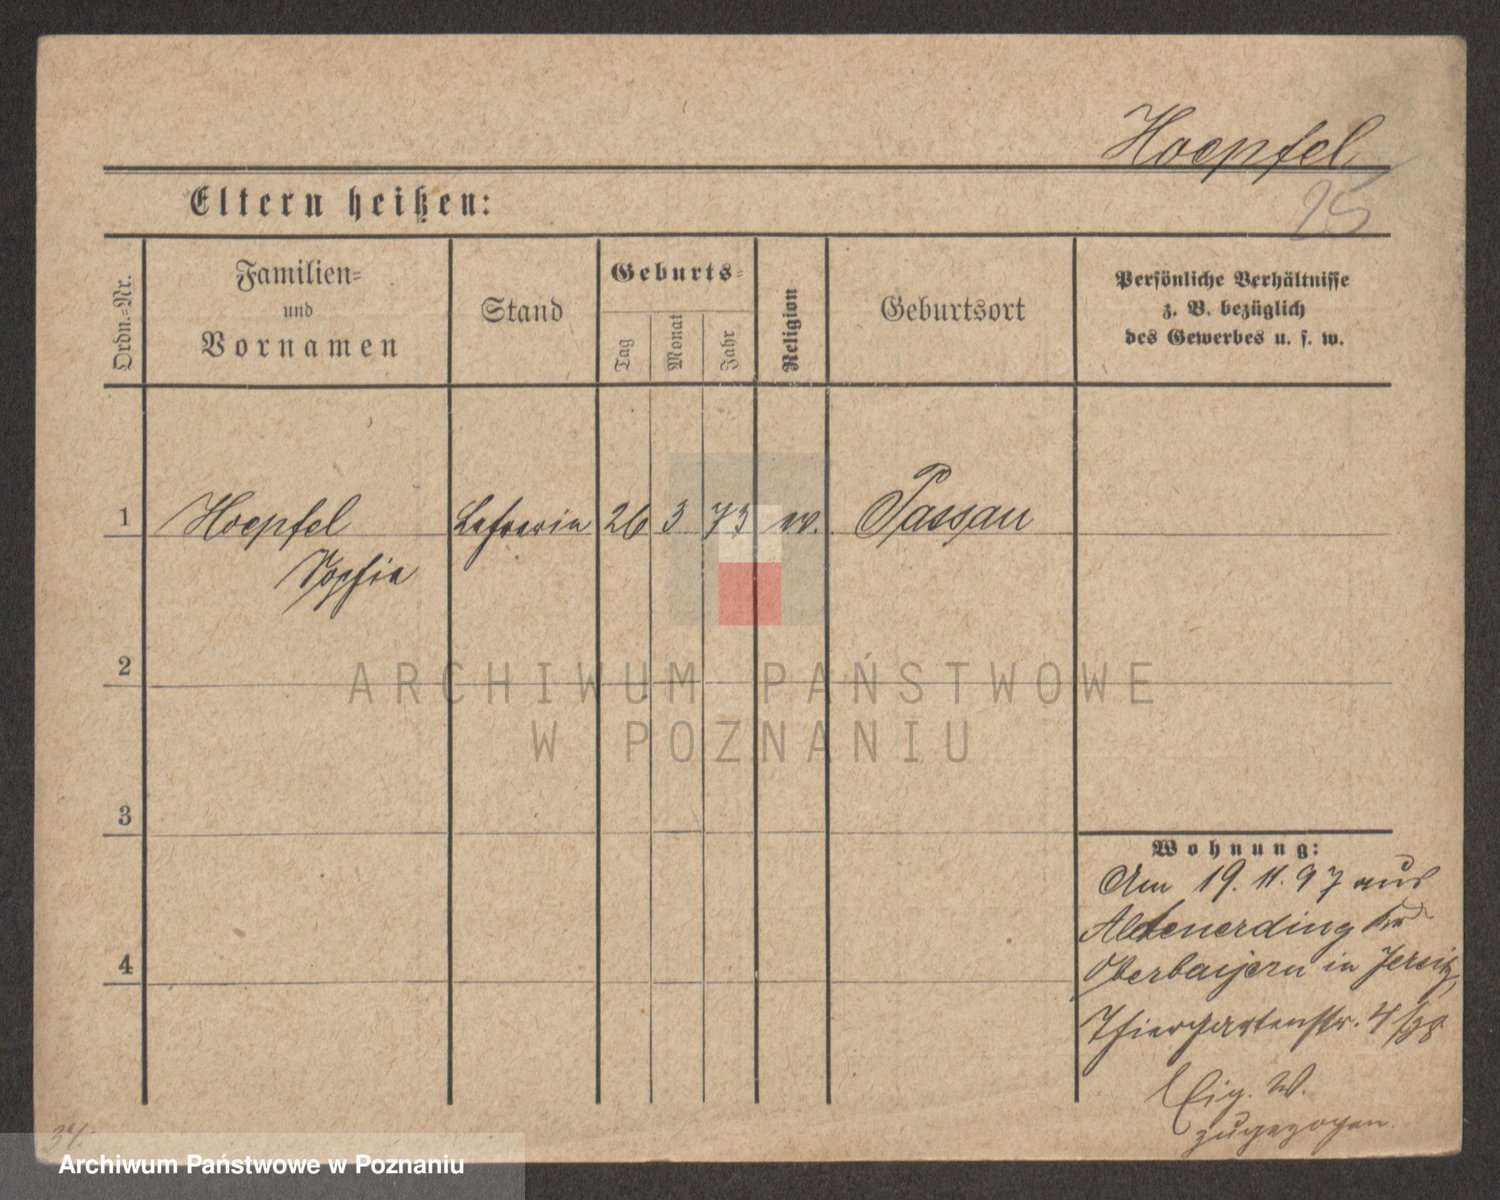 Hoepfel
25
Eltern heißen:
Ordn.-Nr.
Familien-
und
Vornamen
Stand
Geburts-
Tag
Monat
Jahr
Religion
Geburtsort
Persönliche Verhältnisse
z. B. bezüglich
des Gewerbes u. s. w.
1 Hoepfel Lehrerin 26 3 73 Passau
Sophie
2
ARCHIWUM PAŃSTWOWE
W POZNANIU
3
4
Wohnung:
Am 19. 11. 97 aus
Altenerding
Oberbayern in Jersitz,
Thiergartenstr. 4
W.
zugezogen
34.
Archiwum Państwowe w Poznaniu